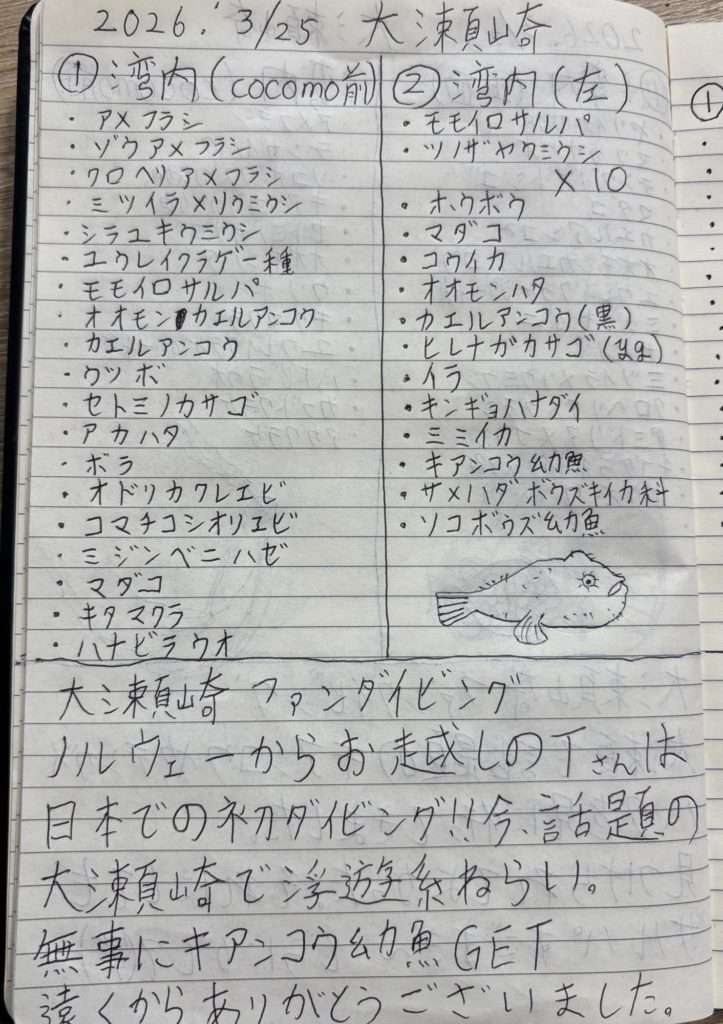 2026. 3/25 大瀬崎
① 湾内(cocomo前)
・アメフラシ
・ゾウアメフラシ
・クロヘリアメフラシ
・ミツイラメリウミウシ
・シラユキウミウシ
・ユウレイクラゲ一種
・モモイロサルパ
・オオモンカエルアンコウ
・カエルアンコウ
・ウツボ
・セトミノカサゴ
・アカハタ
・ボラ
・オドリカクレエビ
・コマチコシオリエビ
・ミジンベニハゼ
・マダコ
・キタマクラ
・ハナビラウオ
② 湾内(左)
・モモイロサルパ
・ツノザヤウミウシ
×10
・ホウボウ
・マダコ
・コウイカ
・オオモンハタ
・カエルアンコウ(黒)
・ヒレナガカサゴ(yg)
・イラ
・キンギョハナダイ
・ミミイカ
・キアンコウ幼魚
・サメハダホウズキイカ科
・ソコボウズ幼魚
大瀬崎 ファンダイビング
ノルウェーからお越しのTさんは
日本での初ダイビング!!今、話題の
大瀬崎で浮遊系ねらい。
無事にキアンコウ幼魚GET
遠くからありがとうございました。
①